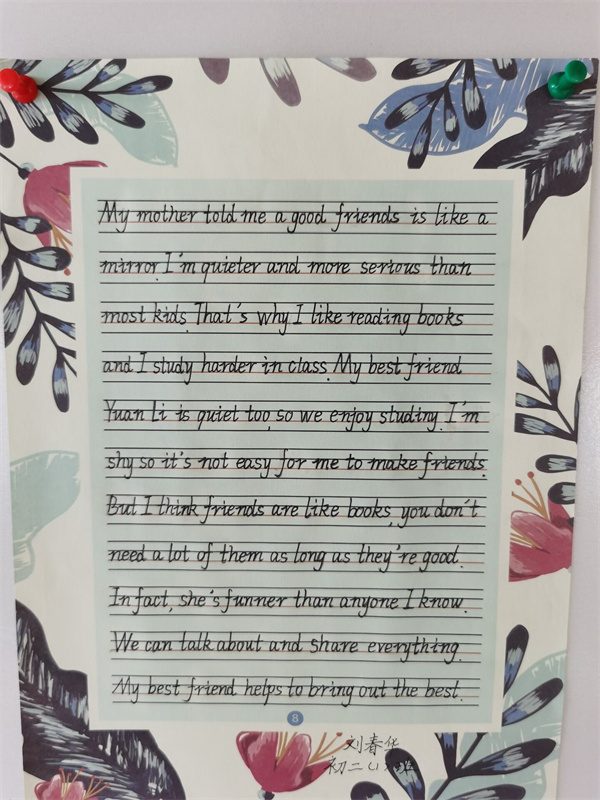 My mother told me a good friends is like a
mirror. I'm quieter and more serious than
most kids. That's why I like reading books
and I study harder in class. My best friend
Yuan Li is quiet too, so we enjoy studiny. I'm
shy so it's not easy for me to make friends.
But I think friends are like books, you don't
need a lot of them as long as they're good.
In fact, she's funner than anyone I know.
We can talk about and share everything.
My best friend helps to bring out the best.
8
刘春华
初二